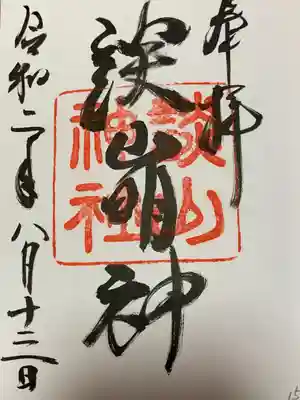 奉拝
談山明神
談山神社
令和二年八月十三日
15